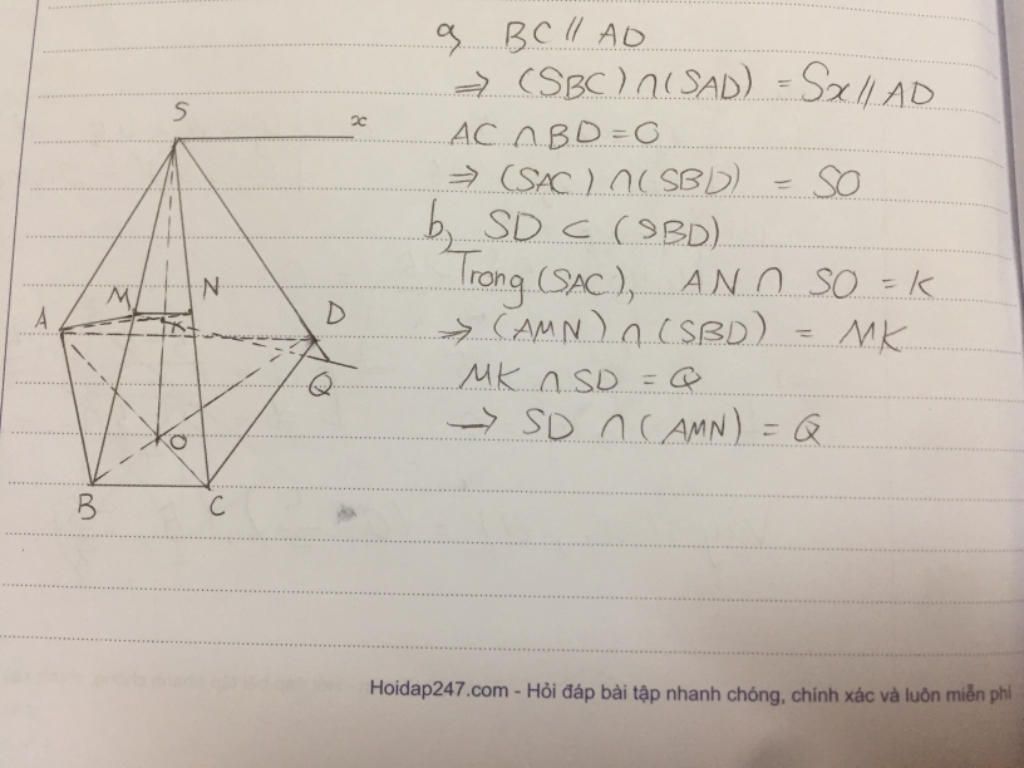 a, BC // AD
⇒ (SBC) ∩ (SAD) = Sx // AD
AC ∩ BD = O
⇒ (SAC) ∩ (SBD) = SO
b, SD ⊂ (SBD)
Trong (SAC), AN ∩ SO = K
⇒ (AMN) ∩ (SBD) = MK
MK ∩ SD = Q
→ SD ∩ (AMN) = Q
S
x
M
N
A
K
D
Q
O
B
C
Hoidap247.com - Hỏi đáp bài tập nhanh chóng, chính xác và luôn miễn phí